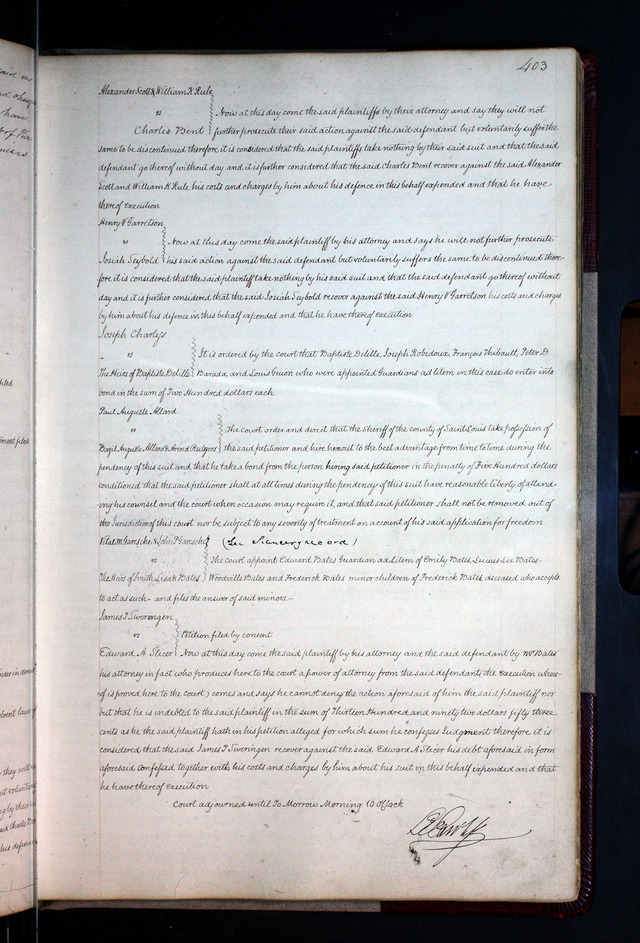 403
Alexander Scott & William K Rule
vs
Now at this day come the said plaintiffs by their attorney and say they will not
Charles Bent further prosecute their said action against the said defendant but voluntarily suffer the
same to be discontinued therefore it is considered that the said plaintiffs take nothing by their said suit and that the said
defendant go thereof without day and it is further considered that the said Charles Bent recover against the said Alexander
Scott and William K Rule his costs and charges by him about his defence in this behalf expended and that he have
thereof execution
Henry V Garretson
vs
Now at this day come the said plaintiff by his attorney and says he will not further prosecute
Josiah Seybold his said action against the said defendant but voluntarily suffers the same to be discontinued there-
fore it is considered that the said plaintiff take nothing by his said suit and that the said defendant go thereof without
day and it is further considered that the said Josiah Seybold recover against the said Henry V Garretson his costs and charges
by him about his defence in this behalf expended and that he have thereof execution
Joseph Charless
vs
It is ordered by the court that Baptiste Delille, Joseph Robidoux, François Thibault, Peter D
The Heirs of Baptiste Delille Barada, and Louis Guion who were appointed Guardians ad litem in this case do enter into
bond in the sum of Two Hundred dollars each
Paul Auguste Allard
vs
The court order and direct that the Sheriff of the county of Saint Louis take possession of
Bazil Auguste Allard & Arend Rutgers the said petitioner and hire him out to the best advantage from time to time during the
pendency of this suit and that he take a bond from the person hiring said petitioner in the penalty of Five Hundred dollars
conditioned that the said petitioner shall at all times during the pendency of this suit have reasonable liberty of attend-
ing his counsel and the court when occasion may require it, and that said petitioner shall not be removed out of
the Jurisdiction of this court nor be subject to any severity of treatment on account of his said application for freedom
Vital M Garesche & John P Garesche (See Chancery record)
vs
The court appoint Edward Bates Guardian ad Litem of Emily Bates, Lucius Lee Bates
The Heirs of Smith, Lisa & Bates Woodville Bates and Frederick Bates minor children of Frederick Bates deceased who accepts
to act as such and files the answer of said minors.
James T Sweringen
vs
Petition filed by consent
Edward A Slicer Now at this day come the said plaintiff by his attorney and the said defendant by Mr Bates
his attorney in fact who produces here to the court a power of attorney from the said defendant, (the execution where-
of is proved here to the court) comes and says he cannot deny the action aforesaid of him the said plaintiff nor
but that he is indebted to the said plaintiff in the sum of Thirteen Hundred and ninety two dollars fifty three
cents as he the said plaintiff hath in his petition alleged for which sum he confesses Judgment therefore it is
considered that the said James T Sweringen recover against the said Edward A Slicer his debt aforesaid in form
aforesaid confessed together with his costs and charges by him about his suit in this behalf expended and that
he have thereof execution
Court adjourned until To Morrow Morning 10 OClock